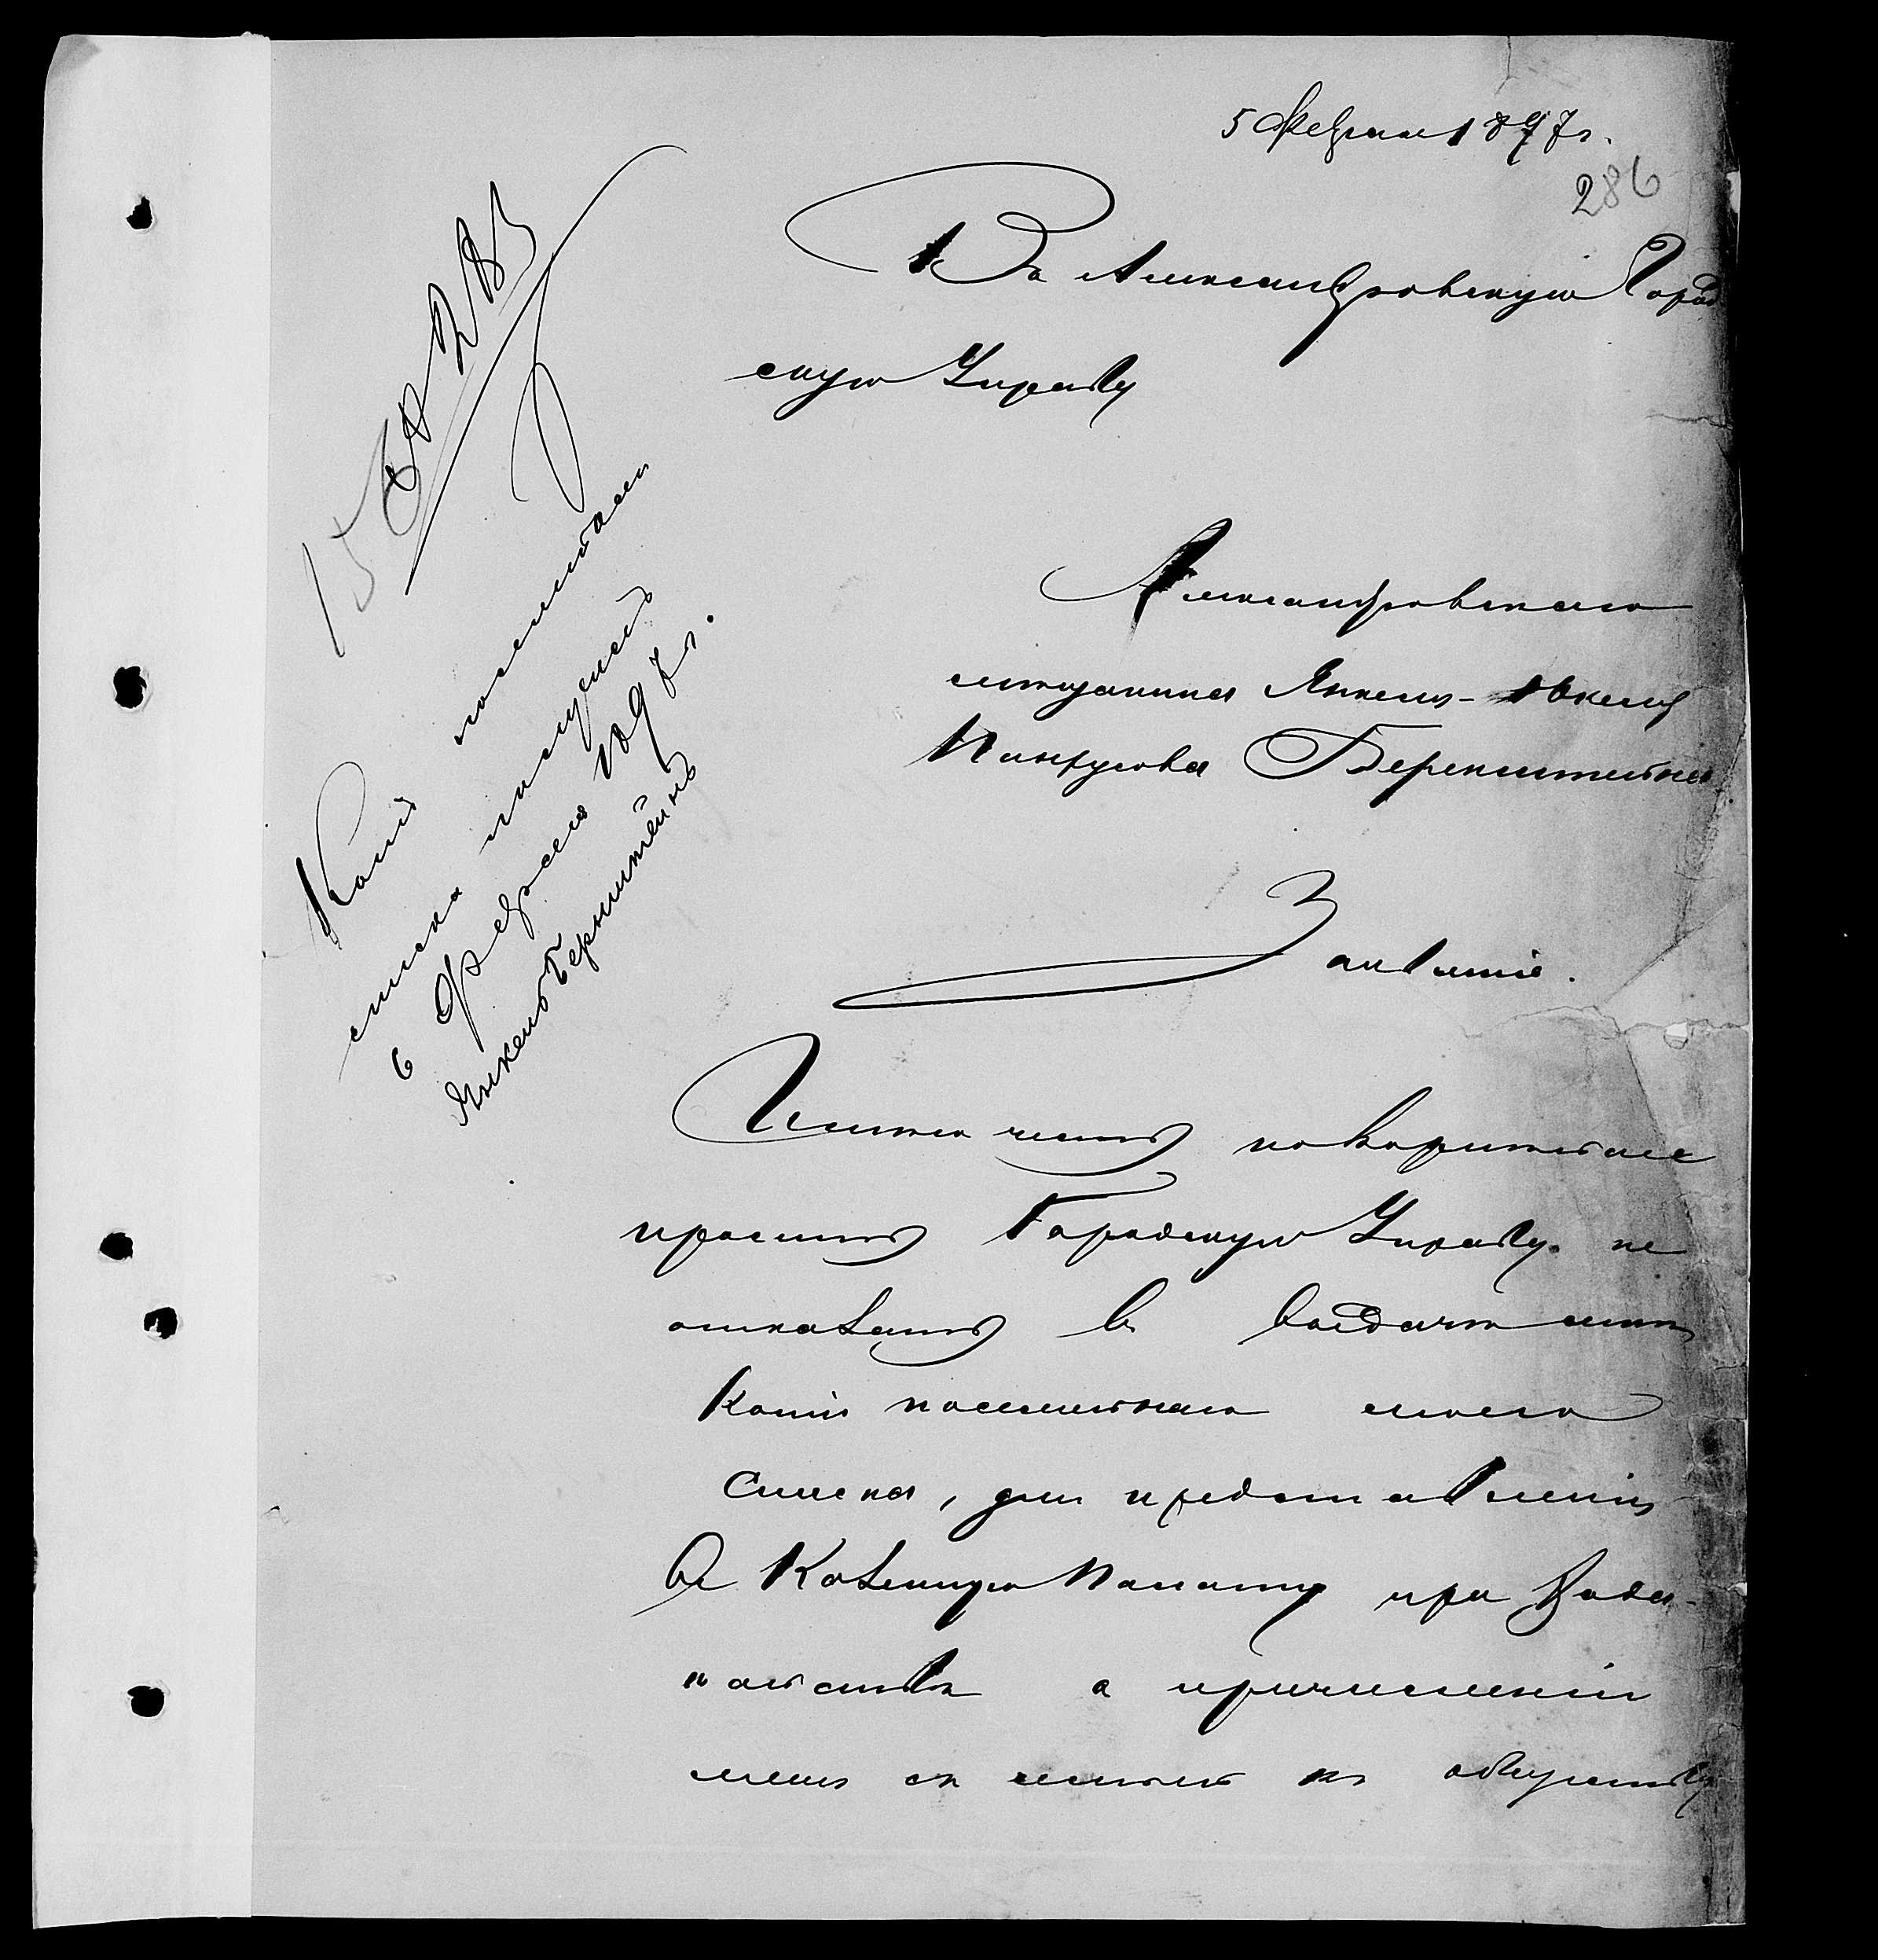 5 Февраля 1897 г.
286
Въ Александровскую Город
скую Управу
Александровскаго
мѣщанина Янкеля-
Пинхусова Беренштейна
Заявленіе.
Имѣю честь покорнѣйше
просить Городскую Управу не
отказать въ выдачѣ мнѣ
копіи посемейнаго моего
списка, для представленія
въ Казенную Палату при хода-
тайствѣ о причисленіи
меня съ семьею къ обществу
Копію посемейнаго
списка получилъ
6 Февраля 1897 г.
Янкель Бернштейнъ